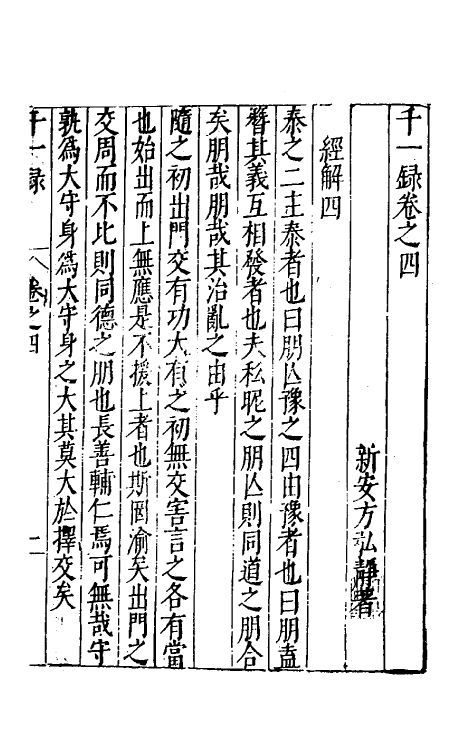 千一録卷之四
新安方弘靜著
經解四
泰之二主泰者也曰朋亾豫之四由豫者也曰朋盍
簪其義互相發者也夫私昵之朋亾則同道之朋合
矣朋哉朋哉其治亂之由乎
隨之初出門交有功大有之初無交害言之各有當
也始出而上無應是不援上者也斯罔渝矣出門之
交周而不比則同德之朋也長善輔仁焉可無哉守
孰爲大守身爲大守身之大其莫大於擇交矣
千一録
卷之四
一